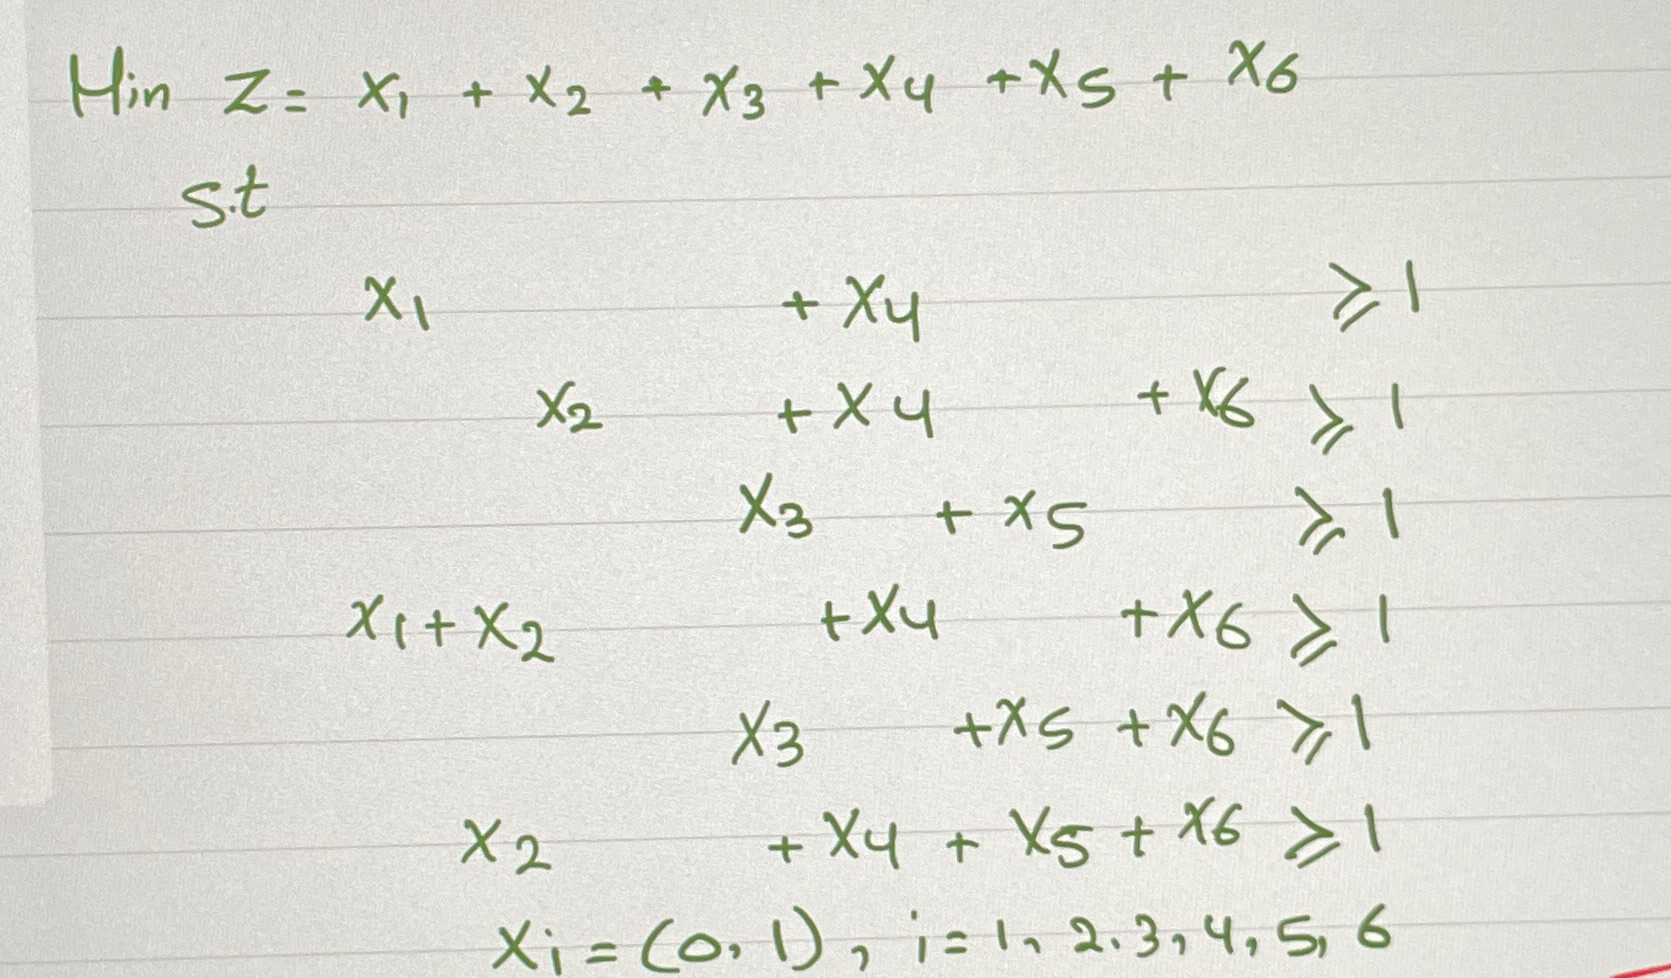 Min Z= x1 + x2 + x3 + x4 + x5 + x6
s.t
x1 + x4 ⩾ 1
x2 + x4 + x6 ⩾ 1
x3 + x5 ⩾ 1
x1 + x2 + x4 + x6 ⩾ 1
x3 + x5 + x6 ⩾ 1
x2 + x4 + x5 + x6 ⩾ 1
xi = (0, 1), i = 1, 2, 3, 4, 5, 6